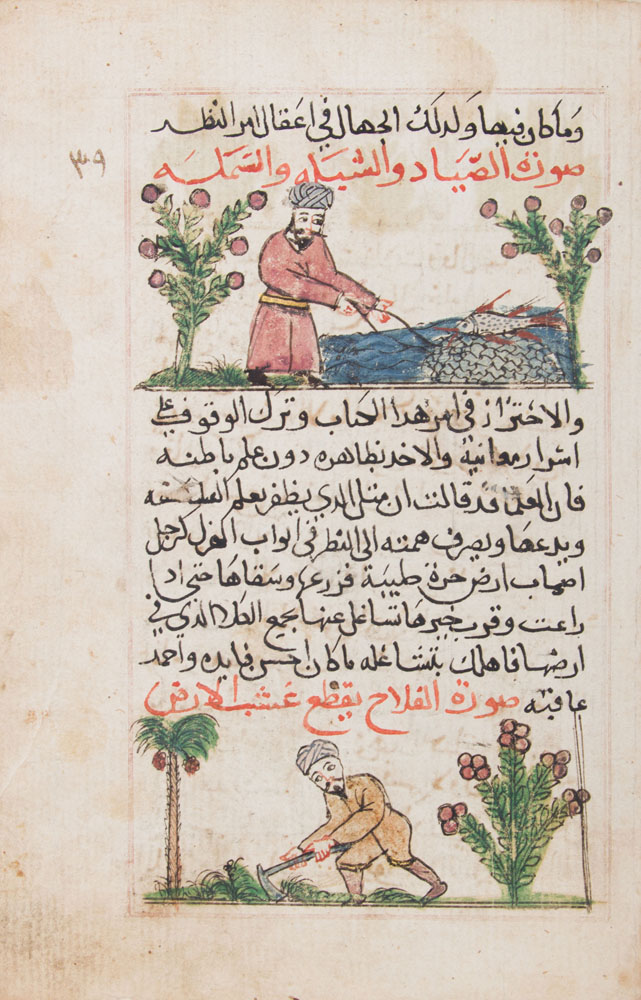 وما كان فيها ولذلك الجهال في اغفال امر النظر
صورة الصياد والشبكه والسمكه
٣٩
والاحتراز في امر هدا الكتاب وترك الوقوف على
اسرار معانيه والاخد بظاهره دون علم باطنه
فان العلما قد قالت ان مثل الدي يظفر بعلم الفلسفه
ويدعها ويصرف همته الى النظر في ابواب الهزل كرجل
اصاب ارض حرة طيبة فزرعها وسقاها حتى ادا
راعت وقرب خيرها تشاغل عنها بجمع الكلا الدي في
ارضها فاهلك بتشاغله ما كان احسن فايده واحمد
عاقبه صورة الفلاح يقطع عشب الارض